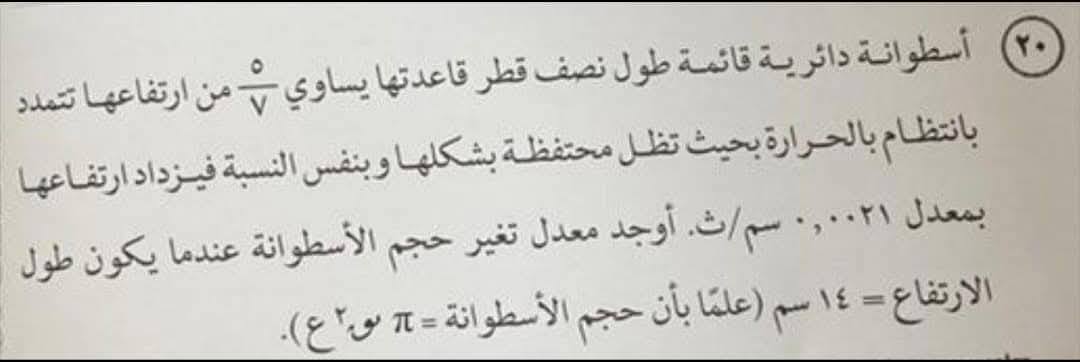 ٢٠ أسطوانة دائرية قائمة طول نصف قطر قاعدتها يساوي ٥/٧ من ارتفاعها تتمدد
بانتظام بالحرارة بحيث تظل محتفظة بشكلها وبنفس النسبة فيزداد ارتفاعها
بمعدل ٠,٠٠٢١ سم/ث. أوجد معدل تغير حجم الأسطوانة عندما يكون طول
الارتفاع = ١٤ سم (علمًا بأن حجم الأسطوانة = π نق٢ ع).